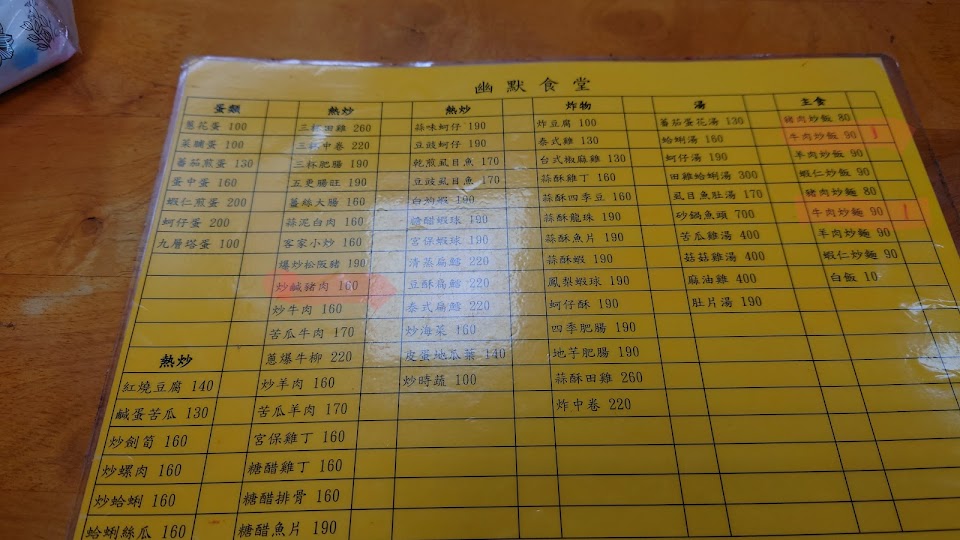 幽默食堂
蛋類
蔥花蛋 100
菜脯蛋 100
蕃茄煎蛋 130
蛋中蛋 160
蝦仁煎蛋 200
蚵仔蛋 200
九層塔蛋 100
熱炒
紅燒豆腐 140
鹹蛋苦瓜 130
炒劍筍 160
炒螺肉 160
炒蛤蜊 160
蛤蜊絲瓜 160
熱炒
三杯田雞 260
三杯中卷 220
三杯肥腸 190
五更腸旺 190
薑絲大腸 160
蒜泥白肉 160
客家小炒 160
爆炒松阪豬 190
炒鹹豬肉 160
炒牛肉 160
苦瓜牛肉 170
蔥爆牛柳 220
炒羊肉 160
苦瓜羊肉 170
宮保雞丁 160
糖醋雞丁 160
糖醋排骨 160
糖醋魚片 190
熱炒
蒜味蚵仔 190
豆豉蚵仔 190
乾煎虱目魚 170
豆豉虱目魚 170
白灼蝦 190
糖醋蝦球 190
宮保蝦球 190
清蒸扁鱈 220
豆酥扁鱈 220
泰式扁鱈 220
炒海菜 160
皮蛋地瓜葉 140
炒時蔬 100
炸物
炸豆腐 100
泰式雞 130
台式椒麻雞 130
蒜酥雞丁 160
蒜酥四季豆 160
蒜酥龍珠 190
蒜酥魚片 190
蒜酥蝦 190
鳳梨蝦球 190
蚵仔酥 190
四季肥腸 190
地芋肥腸 190
蒜酥田雞 260
炸中卷 220
湯
蕃茄蛋花湯 130
蛤蜊湯 160
蚵仔湯 190
田雞蛤蜊湯 300
虱目魚肚湯 170
砂鍋魚頭 700
苦瓜雞湯 400
菇菇雞湯 400
麻油雞 400
肚片湯 190
主食
豬肉炒飯 80
牛肉炒飯 90
羊肉炒飯 90
蝦仁炒飯 90
豬肉炒麵 80
牛肉炒麵 90
羊肉炒麵 90
蝦仁炒麵 90
白飯 10